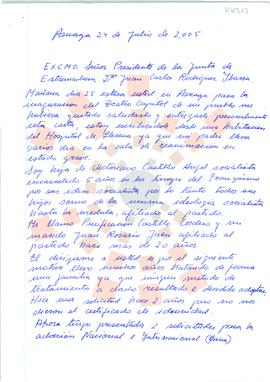 Azuaga 24 de Julio de 2,005
EXCMO. Señor Presidente de la Junta de
Extremadura Dn Juan Carlos Rodriguez Ibarra.
Mañana dia 25 estara usted en Azuaga para la
inauguracion del Teatro Capitol de mi pueblo me
hubiera gustado saludarlo y entregarle personalmente
esta carta, estoy escribiendo desde una habitacion
del Hospital de Llerena ya que mi padre lleva
varios dias en la sala de reanimacion en
estado grave.
Soy hija de Victoriano Castillo socialista
encarcelado 5 años en los tiempos del Franquismo
por sus ideas socialistas por lo tanto todos sus
hijos somos de la misma ideologia socialista
hasta la medula, afiliados al partido.
Me llamo Purificacion Castillo Cordero y mi
marido Juan Rosario afiliado al
partido hace mas de 20 años.
El dirigirme a usted es por el siguiente
motivo llevo muchos años tratando de formar
una familia ya que ningun metodo de
tratamiento a dado resultado e decidido adoptar
Hice una solicitud hace 2 años pero no nos
dieron el certificado de idoneidad.
Ahora tengo presentadas 2 solicitudes para la
adopcion Nacional e Internacional